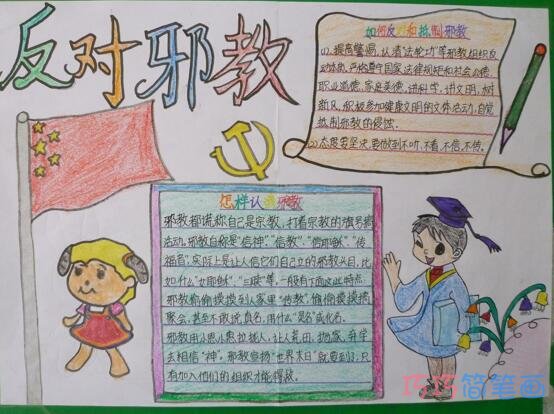 反对邪教
如何反对和抵制邪教
(1)、提高警惕，认清“法轮功”等邪教组织反
动体质，严格遵守国家法律规矩和社会公德、
职业道德、家庭美德，讲科学，讲文明，树
新风，积极参加健康文明的文体活动，自觉
抵制邪教的侵蚀。
(2)态度要坚决，要做到不听、不看、不信、不传。
怎样认识邪教
邪教都说你自己是宗教，打着宗教的旗号搞
活动。邪教自称是“信神”、“信教”、“信耶稣”、“传
福音”，实际上是让人信它们自己立的邪教头目，比
如什么“女耶稣”、“三赎”等，一般有下面这些特点
邪教偷偷摸摸到人家里“传教”，偷偷摸摸搞
聚会，甚至不敢说真名，用什么“灵名”或化名。
邪教用小恩小惠拉拢人，让人荒田、抛家、弃学
去相信“神”。邪教宣扬“世界末日”就要到了，只
有加入他们的组织才能得救。
巧巧简笔画